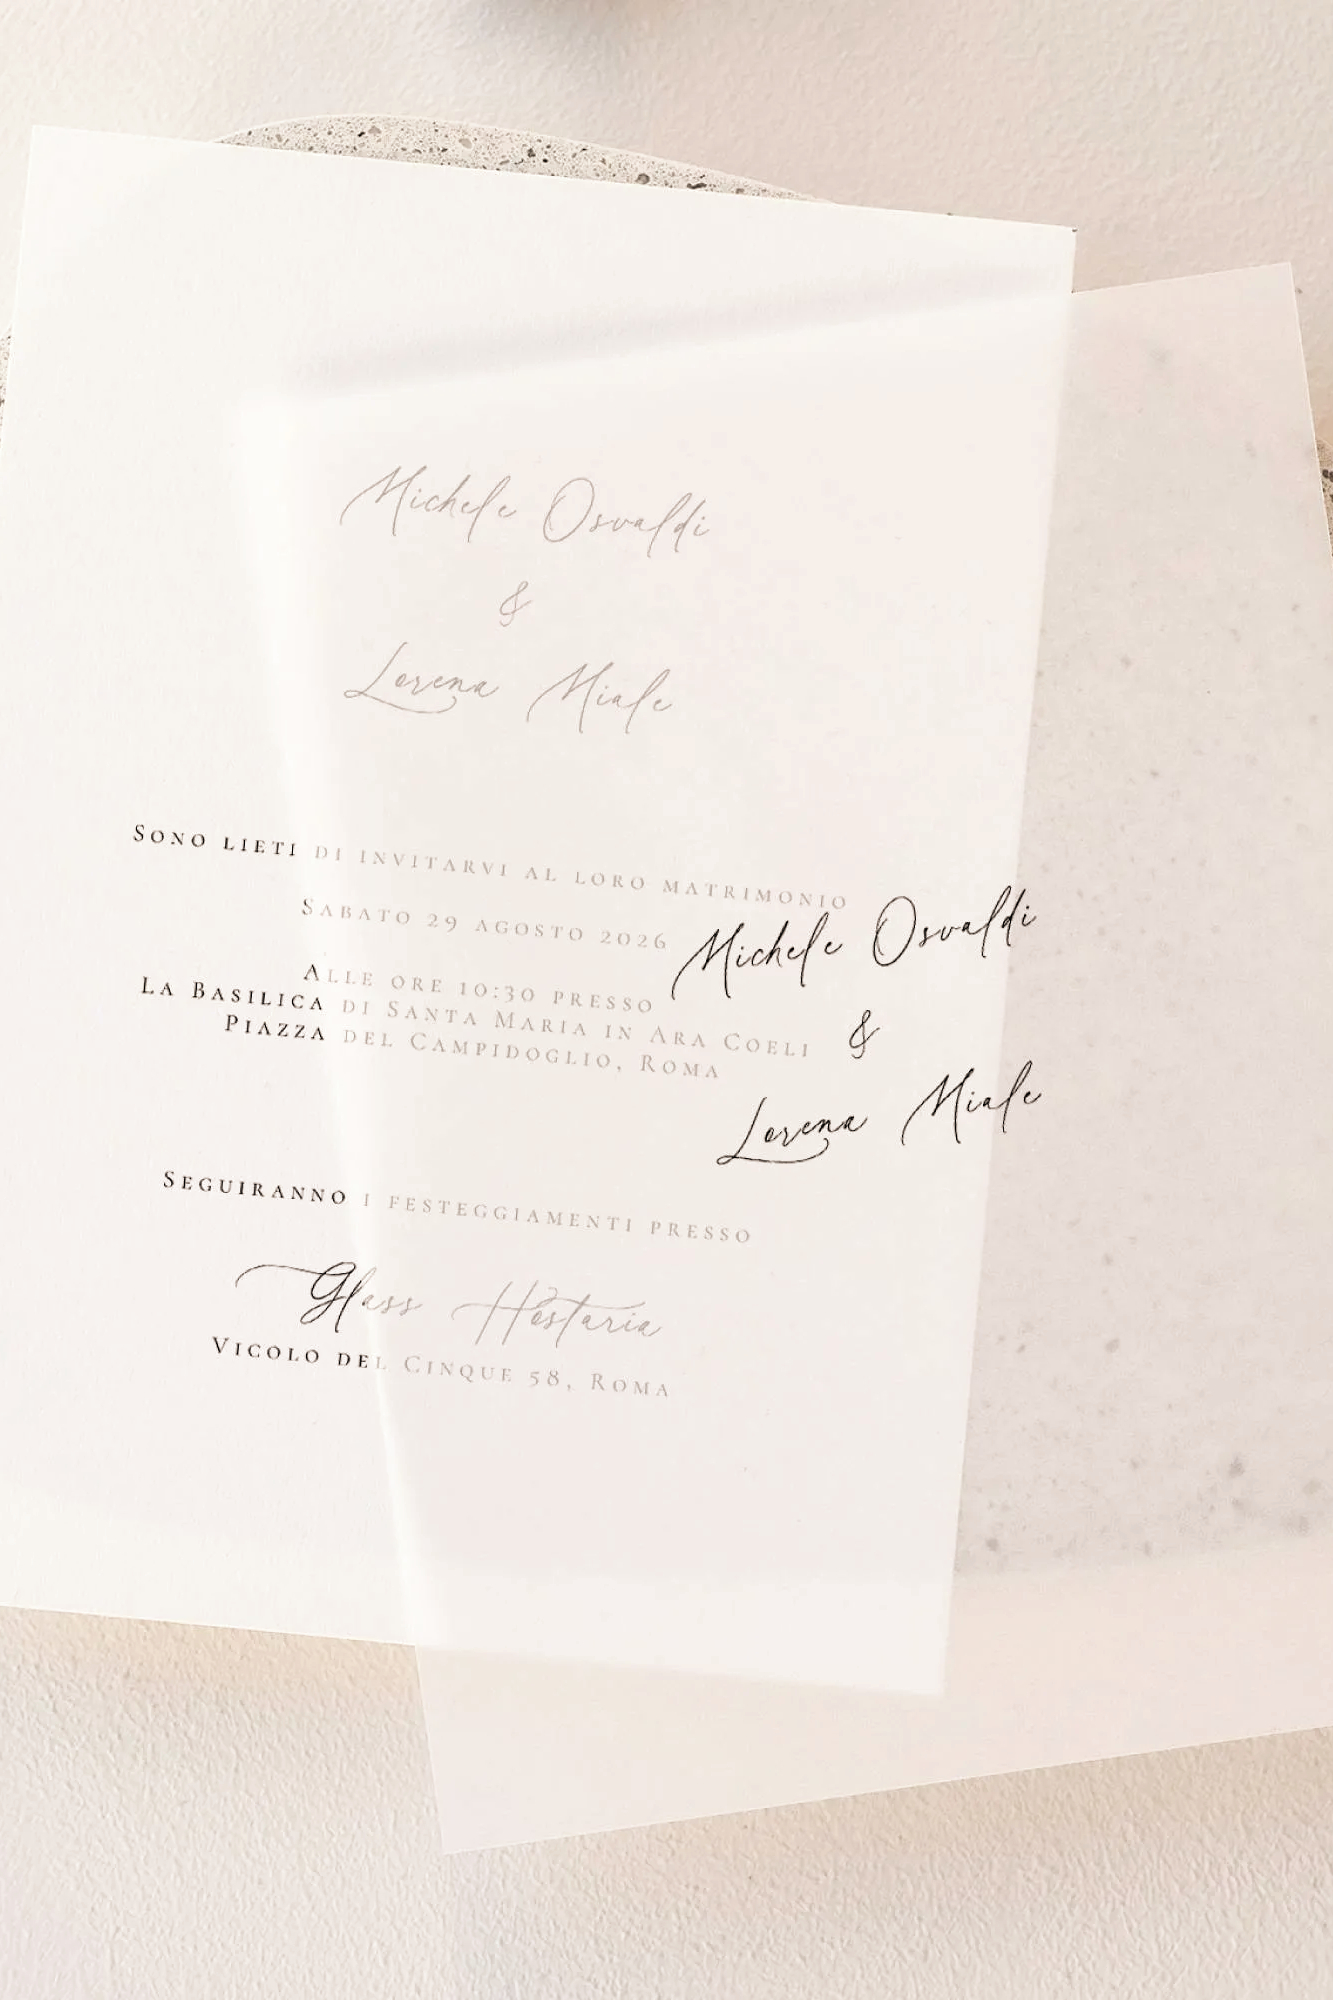 Michele Osvaldi
&
Lorena Miale
Sono lieti di invitarvi al loro matrimonio
Sabato 29 agosto 2026
Alle ore 10:30 presso
La Basilica di Santa Maria in Ara Coeli
Piazza del Campidoglio, Roma
Seguiranno i festeggiamenti presso
Glass Hostaria
Vicolo del Cinque 58, Roma
Michele Osvaldi
&
Lorena Miale